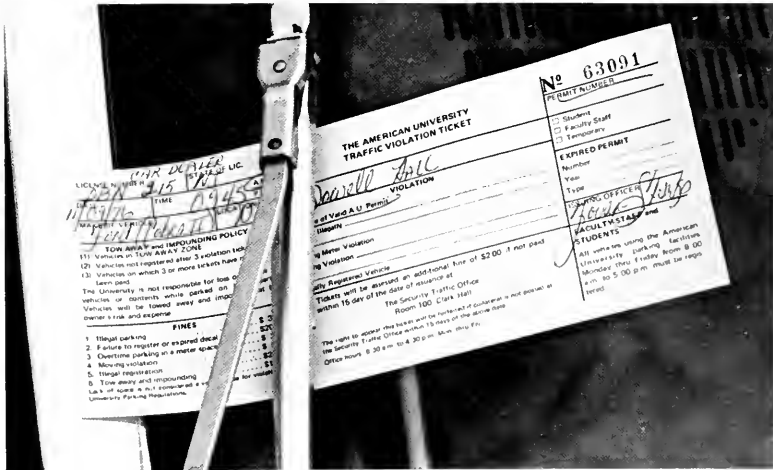 CAR DEALER
LICENSE NUMBER STATE OF LIC.
915
DATE TIME 0945
11/09/76
Ford
TOW AWAY and IMPOUNDING POLICY
(1) Vehicles in TOW AWAY ZONE
(2) Vehicles not registered after 3 violation tick
(3) Vehicles on which 3 or more tickets have
been paid
The University is not responsible for loss o
vehicles or contents while parked on
Vehicles will be towed away and impou at t
owner's risk and expense
FINES
1 Illegal parking $
2. Failure to register or expired decal $20
3 Overtime parking in a meter space $
4 Moving violation $
5. Illegal registration $2
6 Tow away and impounding $1
Lack of space is not considered a v se for violati
University Parking Regulations.
THE AMERICAN UNIVERSITY
TRAFFIC VIOLATION TICKET
Hall
VIOLATION
e of Valid A U Permit
Illegally
g Meter Violation
ng Violation
ally Registered Vehicle
Tickets will be assessed an additional fine of $2.00 if not paid
within 15 day of the date of issuance at
The Security Traffic Office
Room 100 Clark Hall
The right to appeal this ticket will be forfeited if collateral is not posted at
the Security Traffic Office within 15 days of the above date
Office hours 8 30 a m to 4 30 p m Mon thru Fri
Nº 63091
PERMIT NUMBER
Student
Faculty Staff
Temporary
EXPIRED PERMIT
Number
Year
Type
ISSUING OFFICER
FACULTY STAFF and
STUDENTS
All vehicles using the American
University parking facilities
Monday thru Friday from 8 00
a m to 5 00 p m must be regis
tered